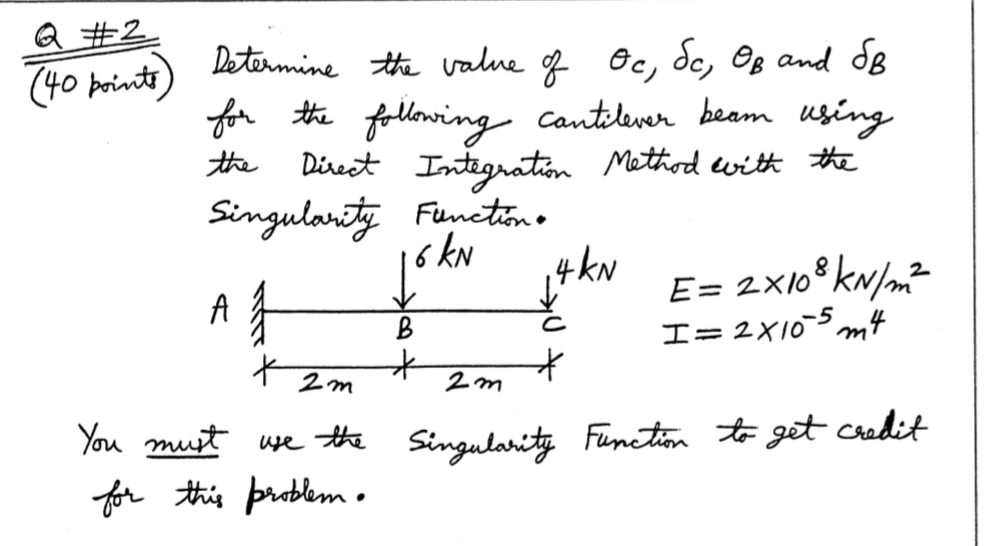 Q #2
(40 points)
Determine the value of θc, δc, θB and δB
for the following cantilever beam using
the Direct Integration Method with the
Singularity Function.
6 kN
4 kN
A
B
C
2 m
2 m
E = 2×10⁸ kN/m²
I = 2×10⁻⁵ m⁴
You must use the Singularity Function to get credit
for this problem.